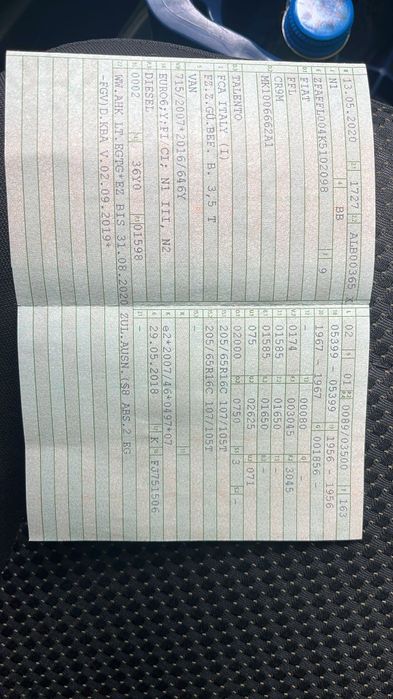 13.05.2020 1727 ALB00365 X
N1 BB
ZFAFFL004K5102098 9
FIAT
FFL
CR9M
MK1D06662A1
TALENTO
FCA ITALY (I)
FZ.Z.GÜ.BEF. B. 3,5 T
VAN
715/2007*2016/646Y
EURO6;Y:PI CI; N1 III, N2
DIESEL
0002 36Y0 01598
WW.AHK LT.EGTG*EZ BIS 31.08.2020 ZUL.AUSN.(§8 ABS.2 EG
-FGV)D.KBA V.02.09.2019*
02 01 0089/03500 163
05399 - 05399 1956 - 1956
1967 - 1967 001856 -
- 00080 -
0174 003045 3045
01585 01650 -
01585 01650 -
075 02625 071
02000 0750 3 -
205/65R16C 107/105T
205/65R16C 107/105T
-
e2*2007/46*0497*07
29.05.2018 K FJ751506
-